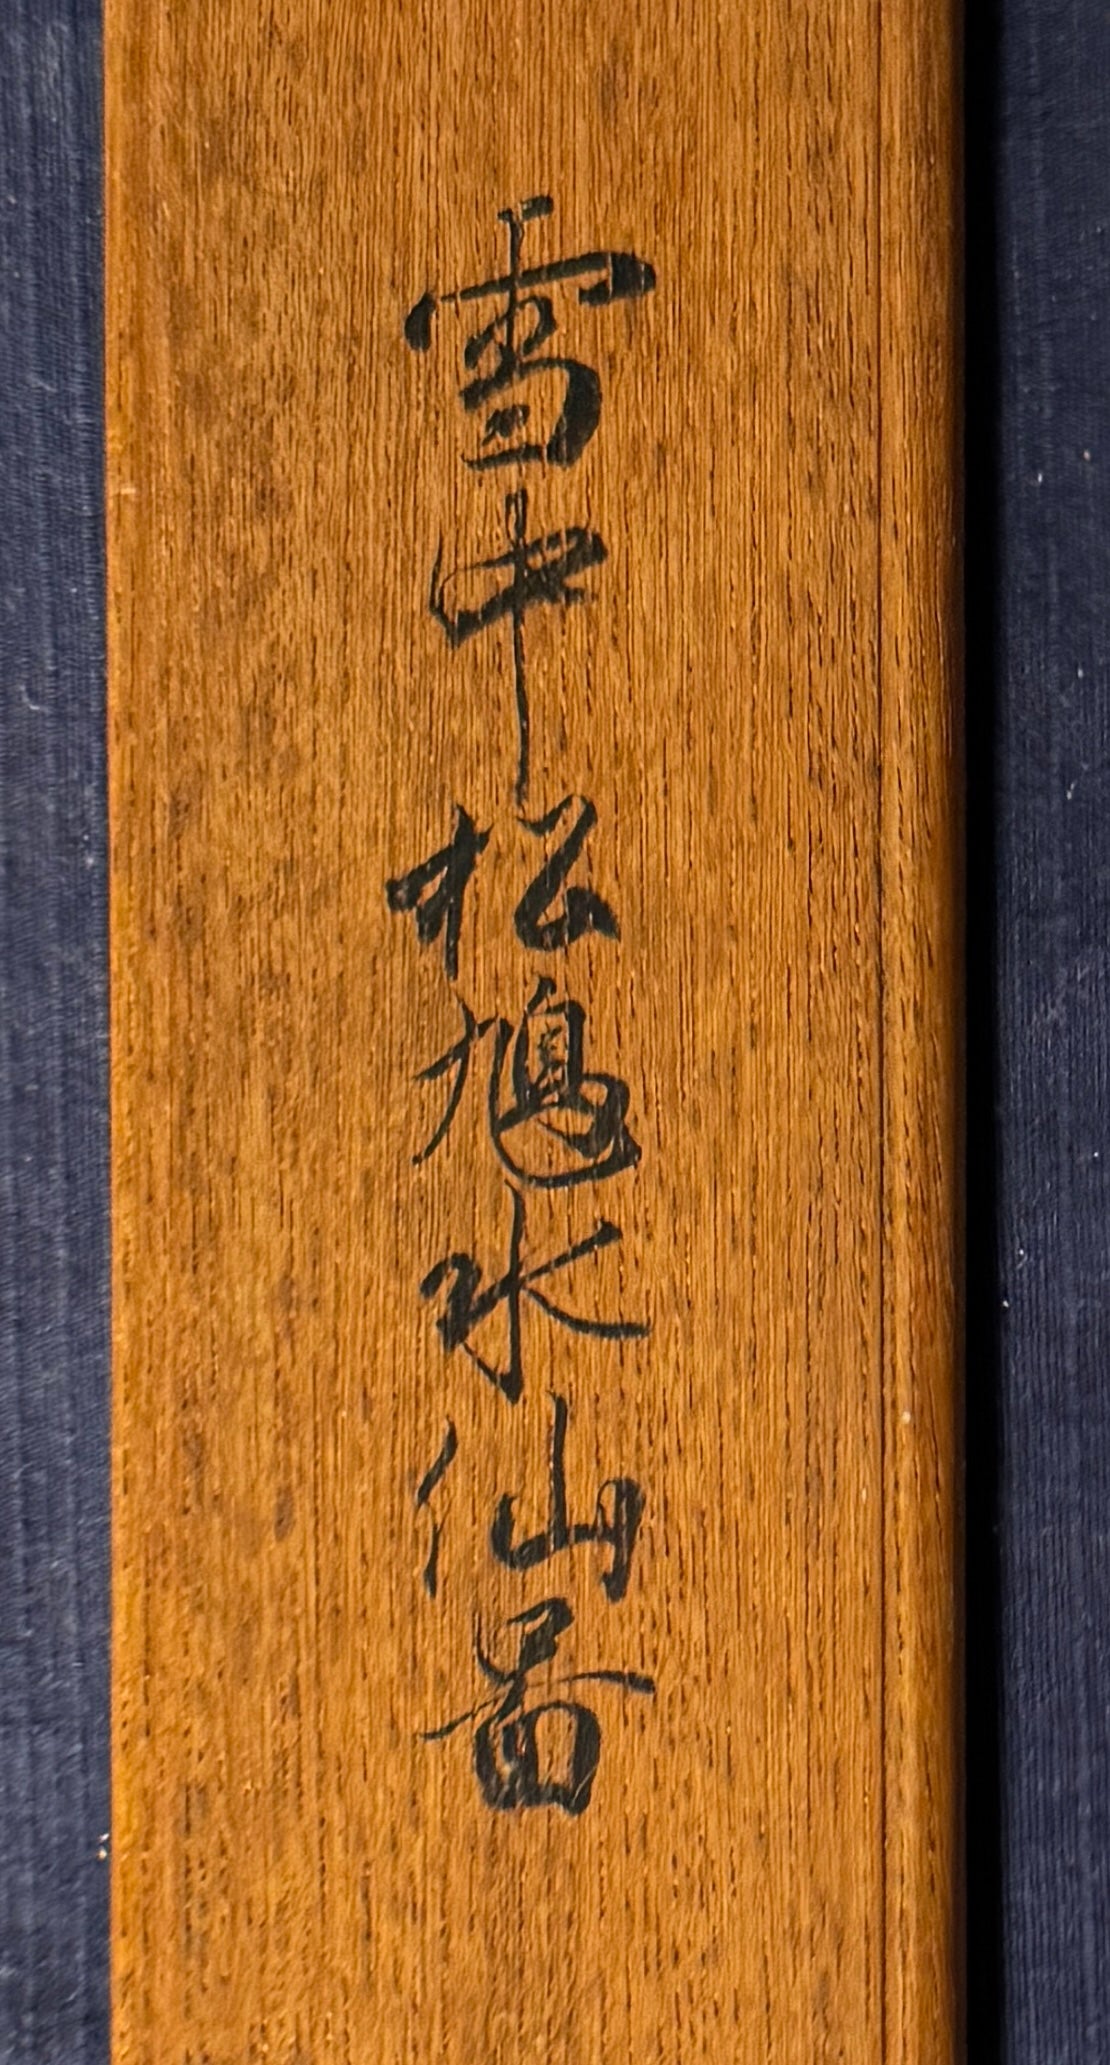 雪中松鳩水仙図